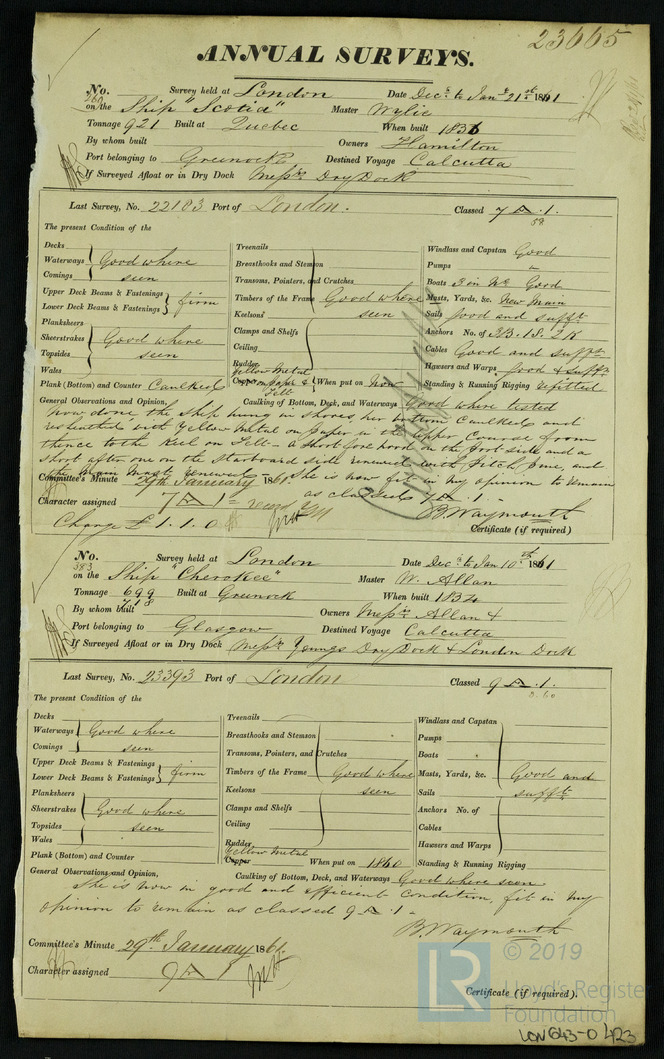 23665
ANNUAL SURVEYS.
No. 260 Survey held at London Date Decr to Jany 21st 1861
on the Ship "Scotia" Master Wylie
Tonnage 921 Built at Quebec When built 1836
By whom built Owners Hamilton
Port belonging to Greenock Destined Voyage Calcutta
If Surveyed Afloat or in Dry Dock Messrs Dry Dock
Last Survey, No. 22183 Port of London. Classed 7 A .1.
58
The present Condition of the
Decks
Waterways Good where
Comings seen
Upper Deck Beams & Fastenings
Lower Deck Beams & Fastenings firm
Planksheers
Sheerstrakes Good where
Topsides seen
Wales
Plank (Bottom) and Counter Caulked
Treenails
Breasthooks and Stemson
Transoms, Pointers, and Crutches
Timbers of the Frame Good where
Keelsons seen
Clamps and Shelfs
Ceiling
Rudder
Yellow Metal
Copper on paper & Felt When put on Now
Windlass and Capstan Good
Pumps "
Boats 3 in No. Good
Masts, Yards, &c. New Main
Sails good and sufft
Anchors No. of 3B. 1S. 2K
Cables Good and sufft
Hawsers and Warps good & sufft
Standing & Running Rigging refitted
General Observations and Opinion, Caulking of Bottom, Deck, and Waterways Good where tested
Now done the Ship hung in shores her bottom Caulked and
resheathed with Yellow Metal on paper in the upper Course from
thence to the Keel on Felt – a short fore hood on the Port side and a
short after one on the Starboard side renewed with Pitch Pine, and
the Main Mast renewed. She is now fit in my opinion to remain
as classed 7 A .1.
Committee's Minute 29th January 1861
Character assigned 7 A 1
B. Waymouth
Charge £ 1. 1. 0
Certificate (if required)
No. 383 Survey held at London Date Decr to Jan 10th 1861
on the Ship "Cherokee" Master W. Allan
Tonnage 699 Built at Greenock When built 1834
718
By whom built Owners Messrs Allan &
Port belonging to Glasgow Destined Voyage Calcutta
If Surveyed Afloat or in Dry Dock Messrs Youngs Dry Dock & London Dock
Last Survey, No. 23393 Port of London Classed 9 A .1.
2.60
The present Condition of the
Decks
Waterways Good where
Comings seen
Upper Deck Beams & Fastenings
Lower Deck Beams & Fastenings firm
Planksheers
Sheerstrakes Good where
Topsides seen
Wales
Plank (Bottom) and Counter
Treenails
Breasthooks and Stemson
Transoms, Pointers, and Crutches
Timbers of the Frame Good where
Keelsons seen
Clamps and Shelfs
Ceiling
Rudder
Yellow Metal
Copper When put on 1860
Windlass and Capstan
Pumps
Boats
Masts, Yards, &c. Good and
Sails sufft
Anchors No. of
Cables
Hawsers and Warps
Standing & Running Rigging
General Observations and Opinion, Caulking of Bottom, Deck, and Waterways Good where seen
She is now in good and efficient condition, fit in my
opinion to remain as classed 9 A .1.
B. Waymouth
Committee's Minute 29th January 1861.
Character assigned 9 A 1
Certificate (if required).
© 2019
LR Lloyd's Register
Foundation
LON643-0423